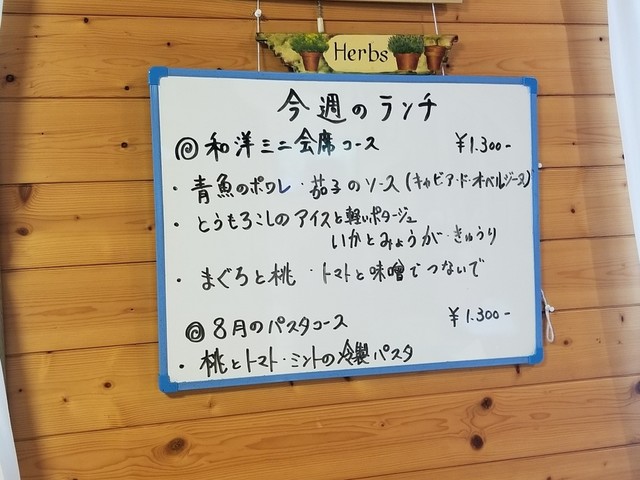 Herbs
今週のランチ
◎和洋ミニ会席コース ¥1.300-
・青魚のポワレ・茄子のソース(キャビア・ド・オベルジーヌ)
・とうもろこしのアイスと軽いポタージュ
いかとみょうが・きゅうり
・まぐろと桃・トマトと味噌でつないで
◎8月のパスタコース ¥1.300-
・桃とトマト・ミントの冷製パスタ